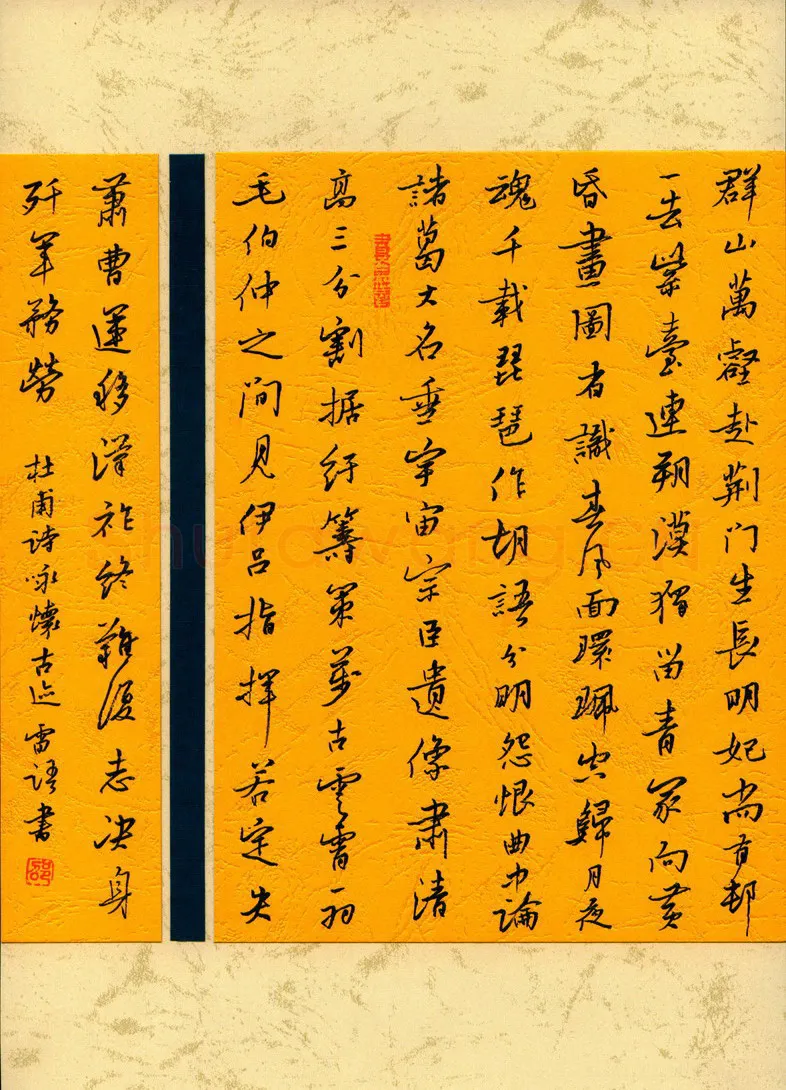 群山萬壑赴荆门生長明妃尚有邨
一去紫臺連朔漠獨留青冢向黄
昏畫圖省識春风面環珮空歸月夜
魂千载琵琶作胡語分明怨恨曲中論
諸葛大名垂宇宙宗臣遺像肅清
高三分割据纡籌策萬古雲霄一羽
毛伯仲之间見伊吕指揮若定失
蕭曹運移漢祚终難復志决身
歼軍務勞 杜甫诗咏懷古迹 雷语書